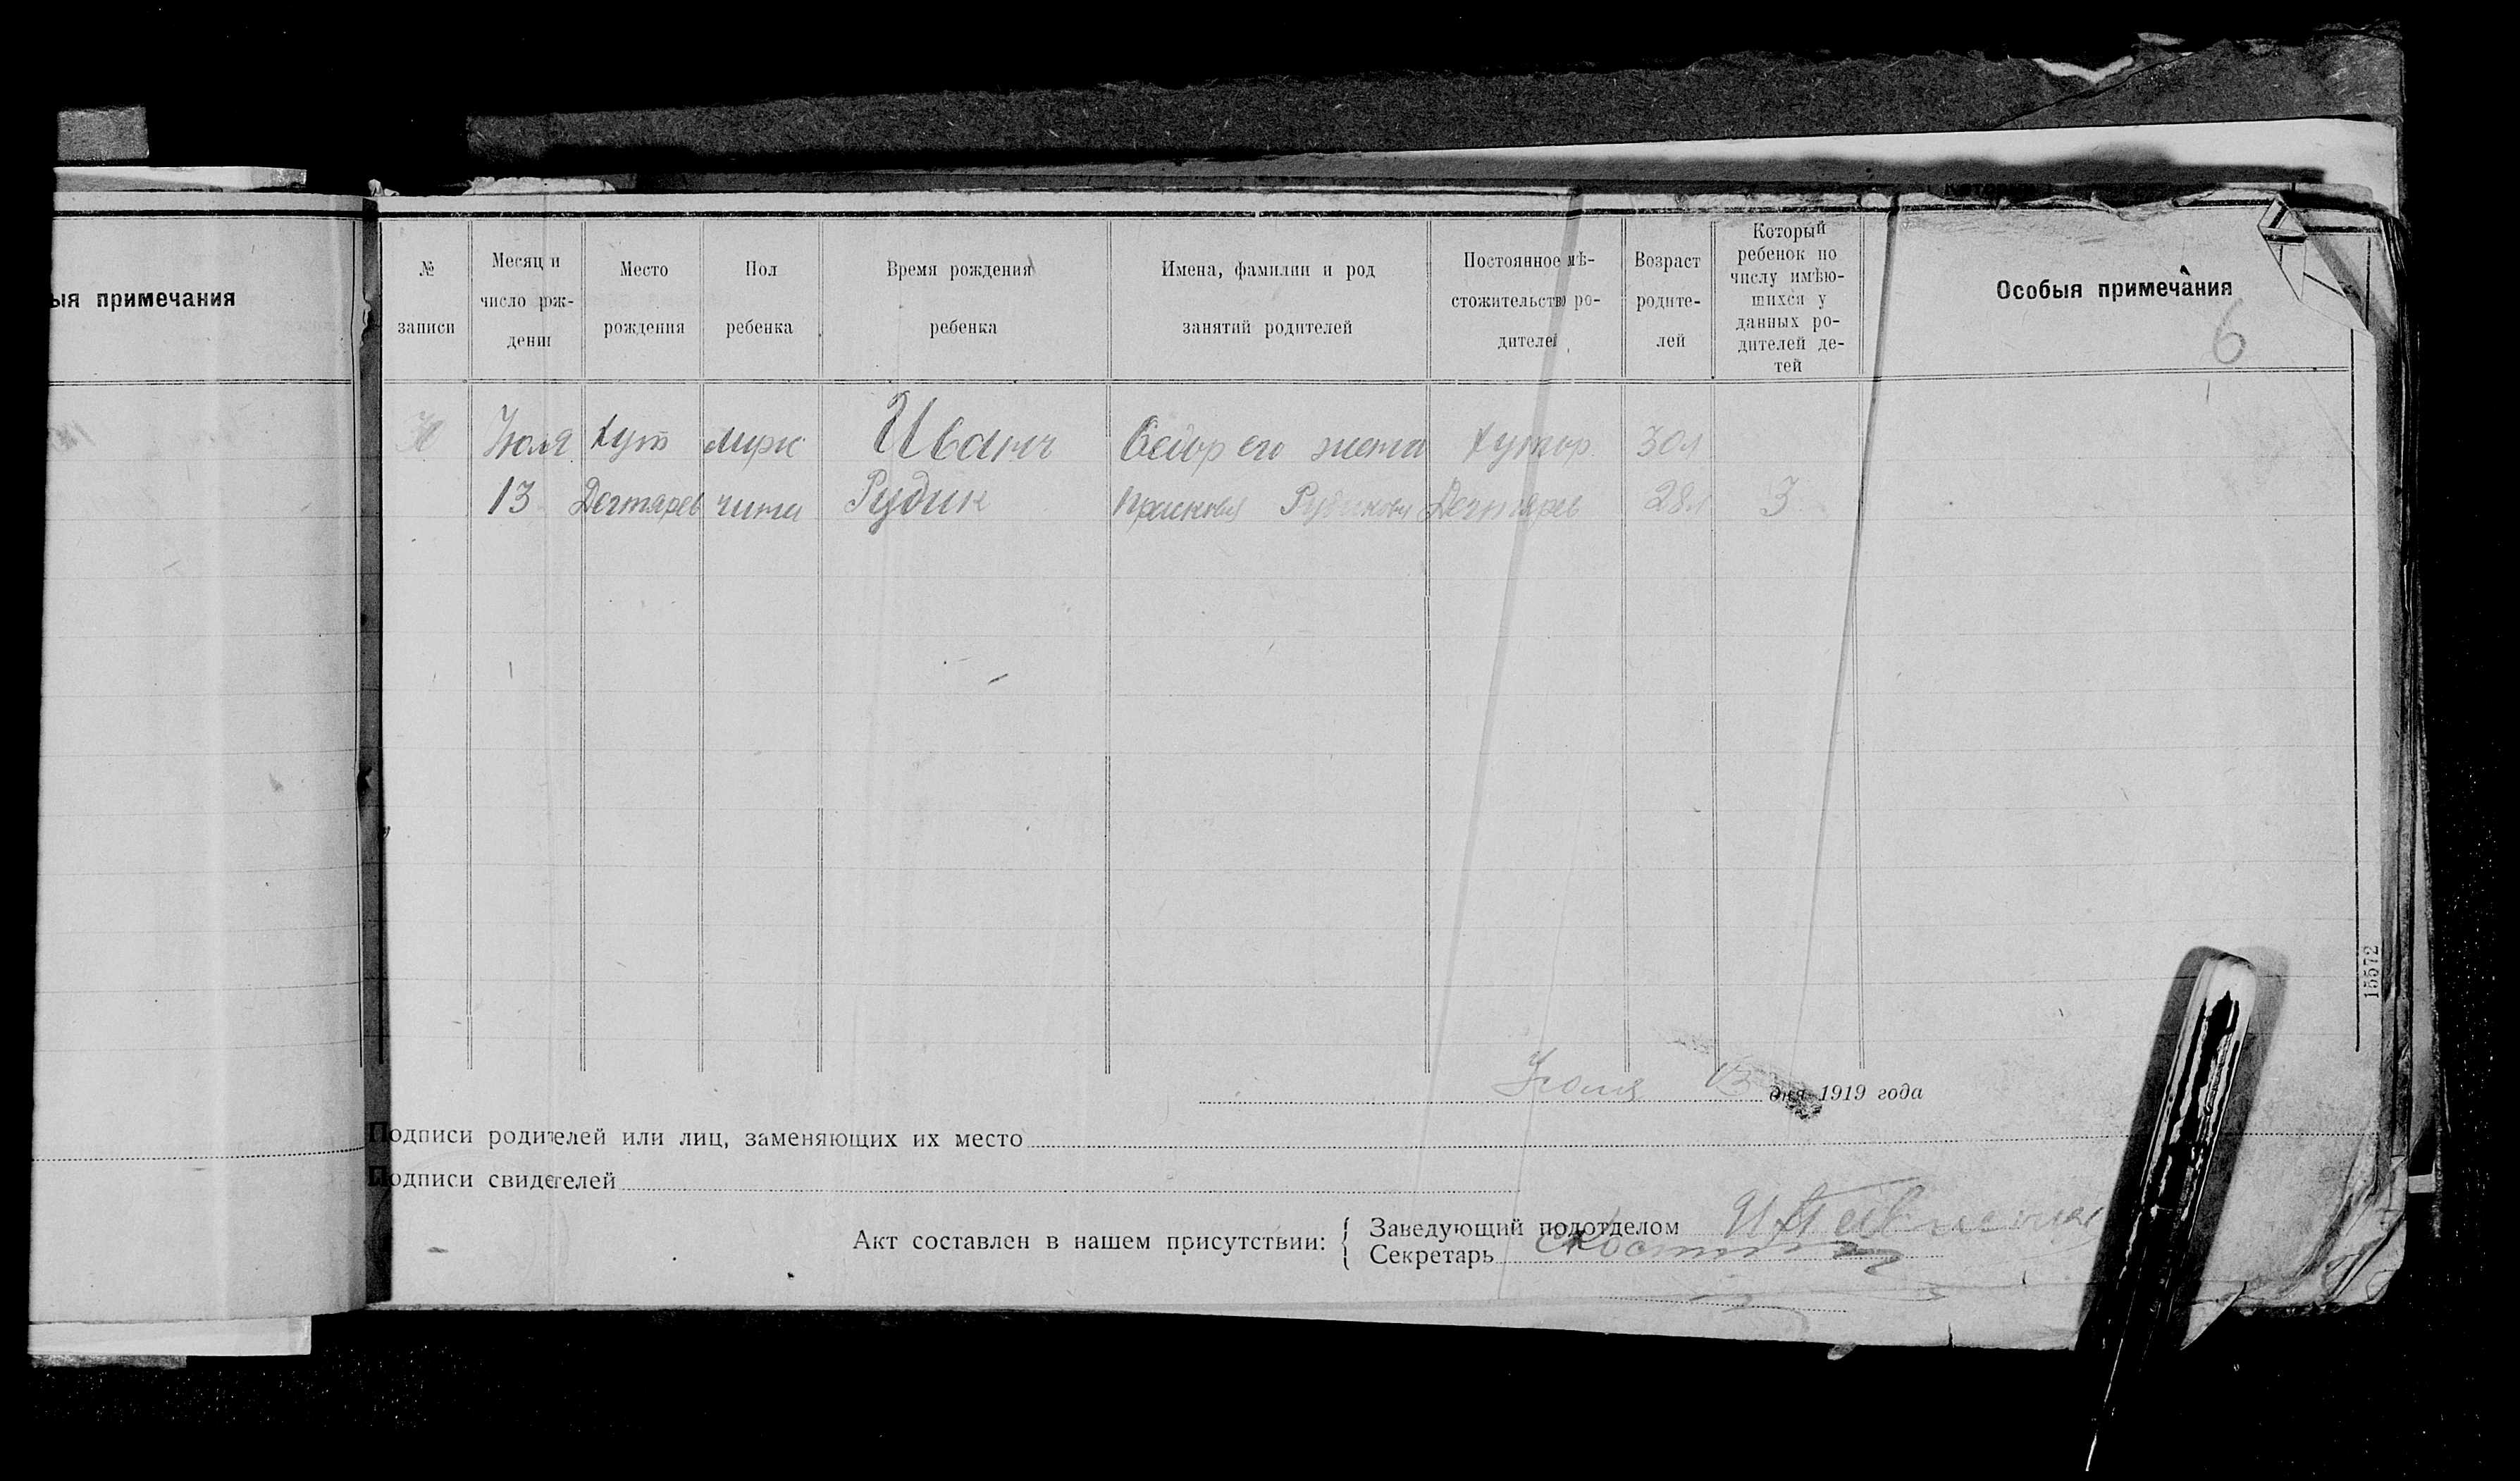 ыя примечания
№ записи
Месяц и число рож- дения
Место рождения
Пол ребенка
Время рождения ребенка
Имена, фамилии и род занятий родителей
Постоянное мѣ- стожительство ро- дителей
Возраст родите- лей
Который ребенок по числу имѣю- шихся у данных ро- дителей де- тей
Особыя примечания
6
Июля Хут мужс Иванъ Федор его жена Хутор 30 л
13 Дегтярев чина Рудик Прасковья Рудикова Дегтярев 28 л 3
Июля 13 дня 1919 года
Подписи родителей или лиц, заменяющих их место
Подписи свидетелей
Акт составлен в нашем присутствии:
Заведующий подотделом
Секретарь
15572